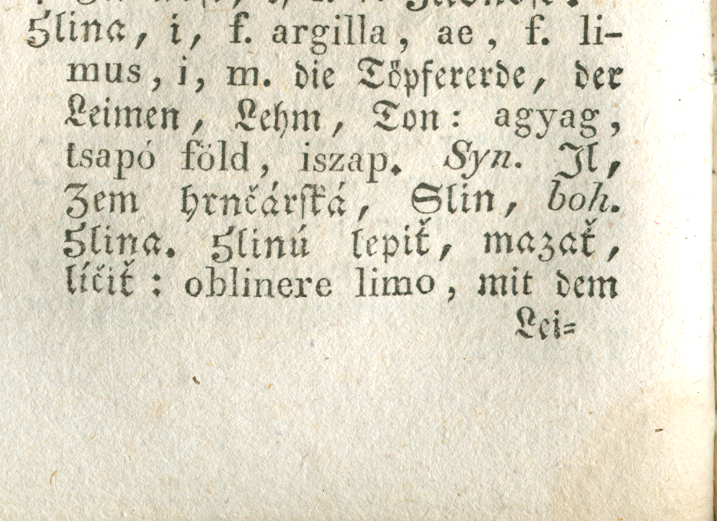 Hlina, i, f. argilla, ae, f. li-
mus, i, m. die Töpfererde, der
Leimen, Lehm, Ton: agyag,
tsapó föld, iszap. Syn. Jl,
Zem hrnčárská, Slin, boh.
Hlina. Hlinú lepiť, mazať,
líčiť: oblinere limo, mit dem
Lei=